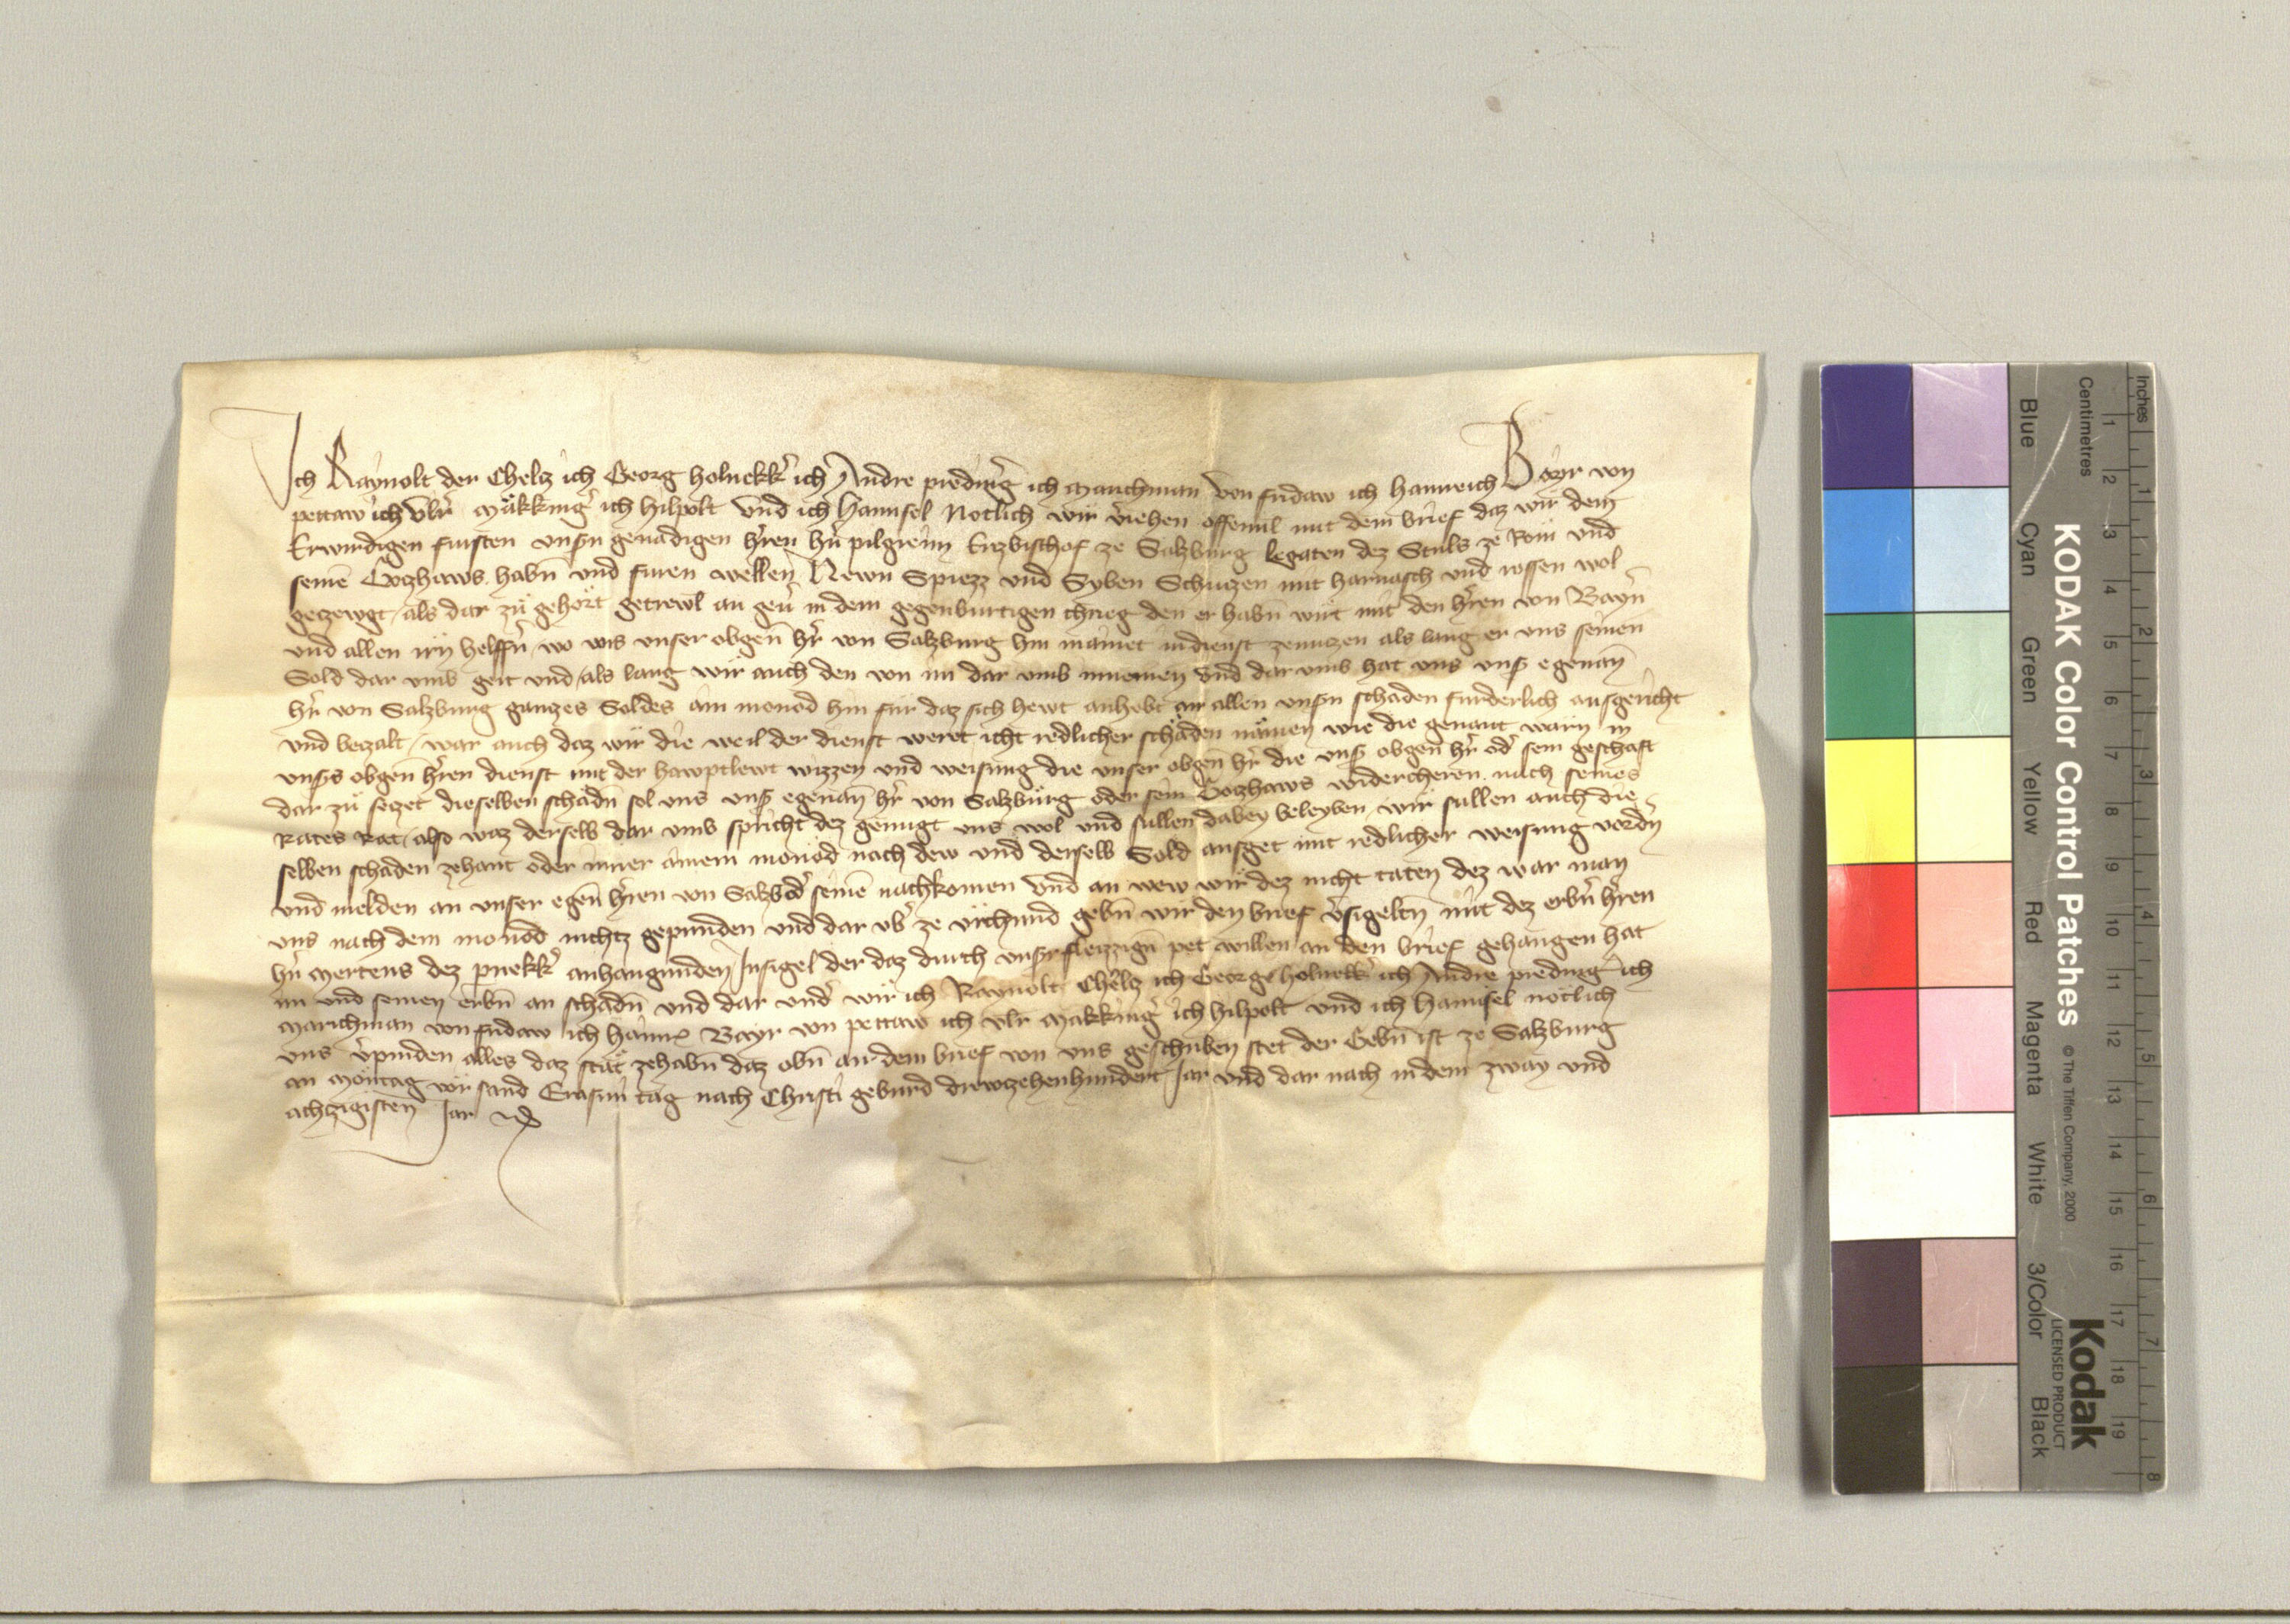 Ich Raynolt der Chelcz ich Georg holnekk̓ ich Andre predinḡ ich Marichman von fudaw ich Hainreich Bayr von
pettaw ich Vlr̓ Mäkking̓ ich hilpolt vnd ich Hannsel Notlich wir v̓iehen offenuil mit dem brief daz wir dem
Erwirdigen fursten vns̓n genadigen h̓ren hn̓ pilgreim Erczbischof ze Salzburg legaten dez Stuls ze Rom vnd
seinē Gotzhaws habn̄ vnd furen wellen Newn Spiezz vnd Syben Schuczen mit harnasch vnd rossen wol
geczewgt als dar zů gehört getrewl an geū in dem gegenburtigen chrieg den er habn̄ wirt mit den h̓ren von Bayrn̄
vnd allen irn helffn̓ wo vns vnser obgen̄ h̓r von Salzburg hin mainet in dienst zenuczen als lang er vns seinen
Sold dar vmb geit vnd als lang wir auch den von im dar vmb innemen vnd dar vmb hat vns vns̓ egenan̄
h̓r von Salzburg ganczes Soldes ain monod hin für daz sich hewt anhebt an allen vns̓n schaden furderlich ausgericht
vnd beczalt war auch daz wir die weil der dienst weret icht redlicher schäden nämen wie die genant wärn in
vns̓s obgen̄ h̓ren dienst mit der hawptlewt wizzen vnd weisung die vnser obgen̄ h̓r die vns̓ obgen̄ h̓r od̓ sein geschaft
dar zů seczet dieselben schädn̄ sol vns vns̓ egenan̄ h̓r von Salzburg oder sein Gotzhaws widercheren nach seines
Rates Rat also waz derselb dar vmb spricht dez genugt vns wol vnd sullen dabey beleyben wir sullen auch die
selben schaden zehant oder inner ainem monod nach dew vnd derselb Sold ausget mit redlicher weisung vordrn̄
vnd melden an vnser egen̄ h̓ren von Salzb od̓ seinē nachkomen vnd an wew wir dez nicht taten dez wär man
vns nach dem monod nichtz gepunden vnd dar vb̓ ze vrchund gebn̄ wir den brief v̓sigeltn̄ mit dez erbn̓ h̓ren
hn̓ Mertens dez pruekk̓ anhangunden Insigel der daz durch vns̓r fleizzign̄ pet willen an den brief gehangen hat
im vnd seinen erbn̄ an schädn̄ vnd dar vnd̓ wir ich Raynolt Chelcz ich Georg holnekk̓ ich Andre preding̓ ich
Marichman von fudaw ich hainr̓ Bayr von pettaw ich vlr̓ Makking̓ ich hilpolt vnd ich hannsel nötlich
vns v̓pinden alles daz stät zehabn̄ daz obn̄ an dem brief von vns geschriben stet der Gebn̄ ist ze Salzburg
an Montag vor sand Erasm̄ tag nach Christi geburd drewczehenhundert Jar vnd dar nach in dem zway vnd
achzigistem Jar
KODAK Color Control Patches © The Tiffen Company, 2000
Kodak
LICENSED PRODUCT
Blue Cyan Green Yellow Red Magenta White 3/Color Black
Inches 1 2 3 4 5 6 7 8
Centimetres 1 2 3 4 5 6 7 8 9 10 11 12 13 14 15 16 17 18 19